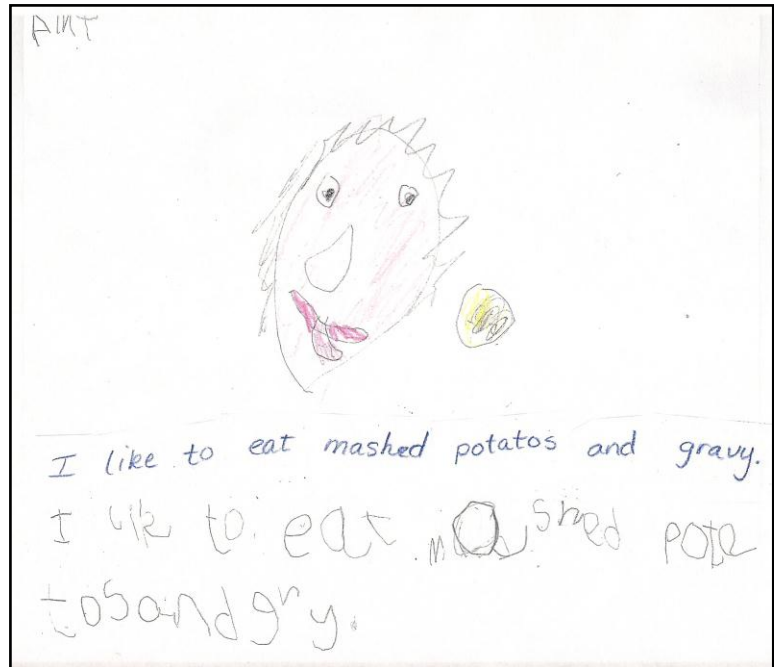 I like to eat mashed potatos and gravy.
I lik to eat mashed pota
tosandgry.